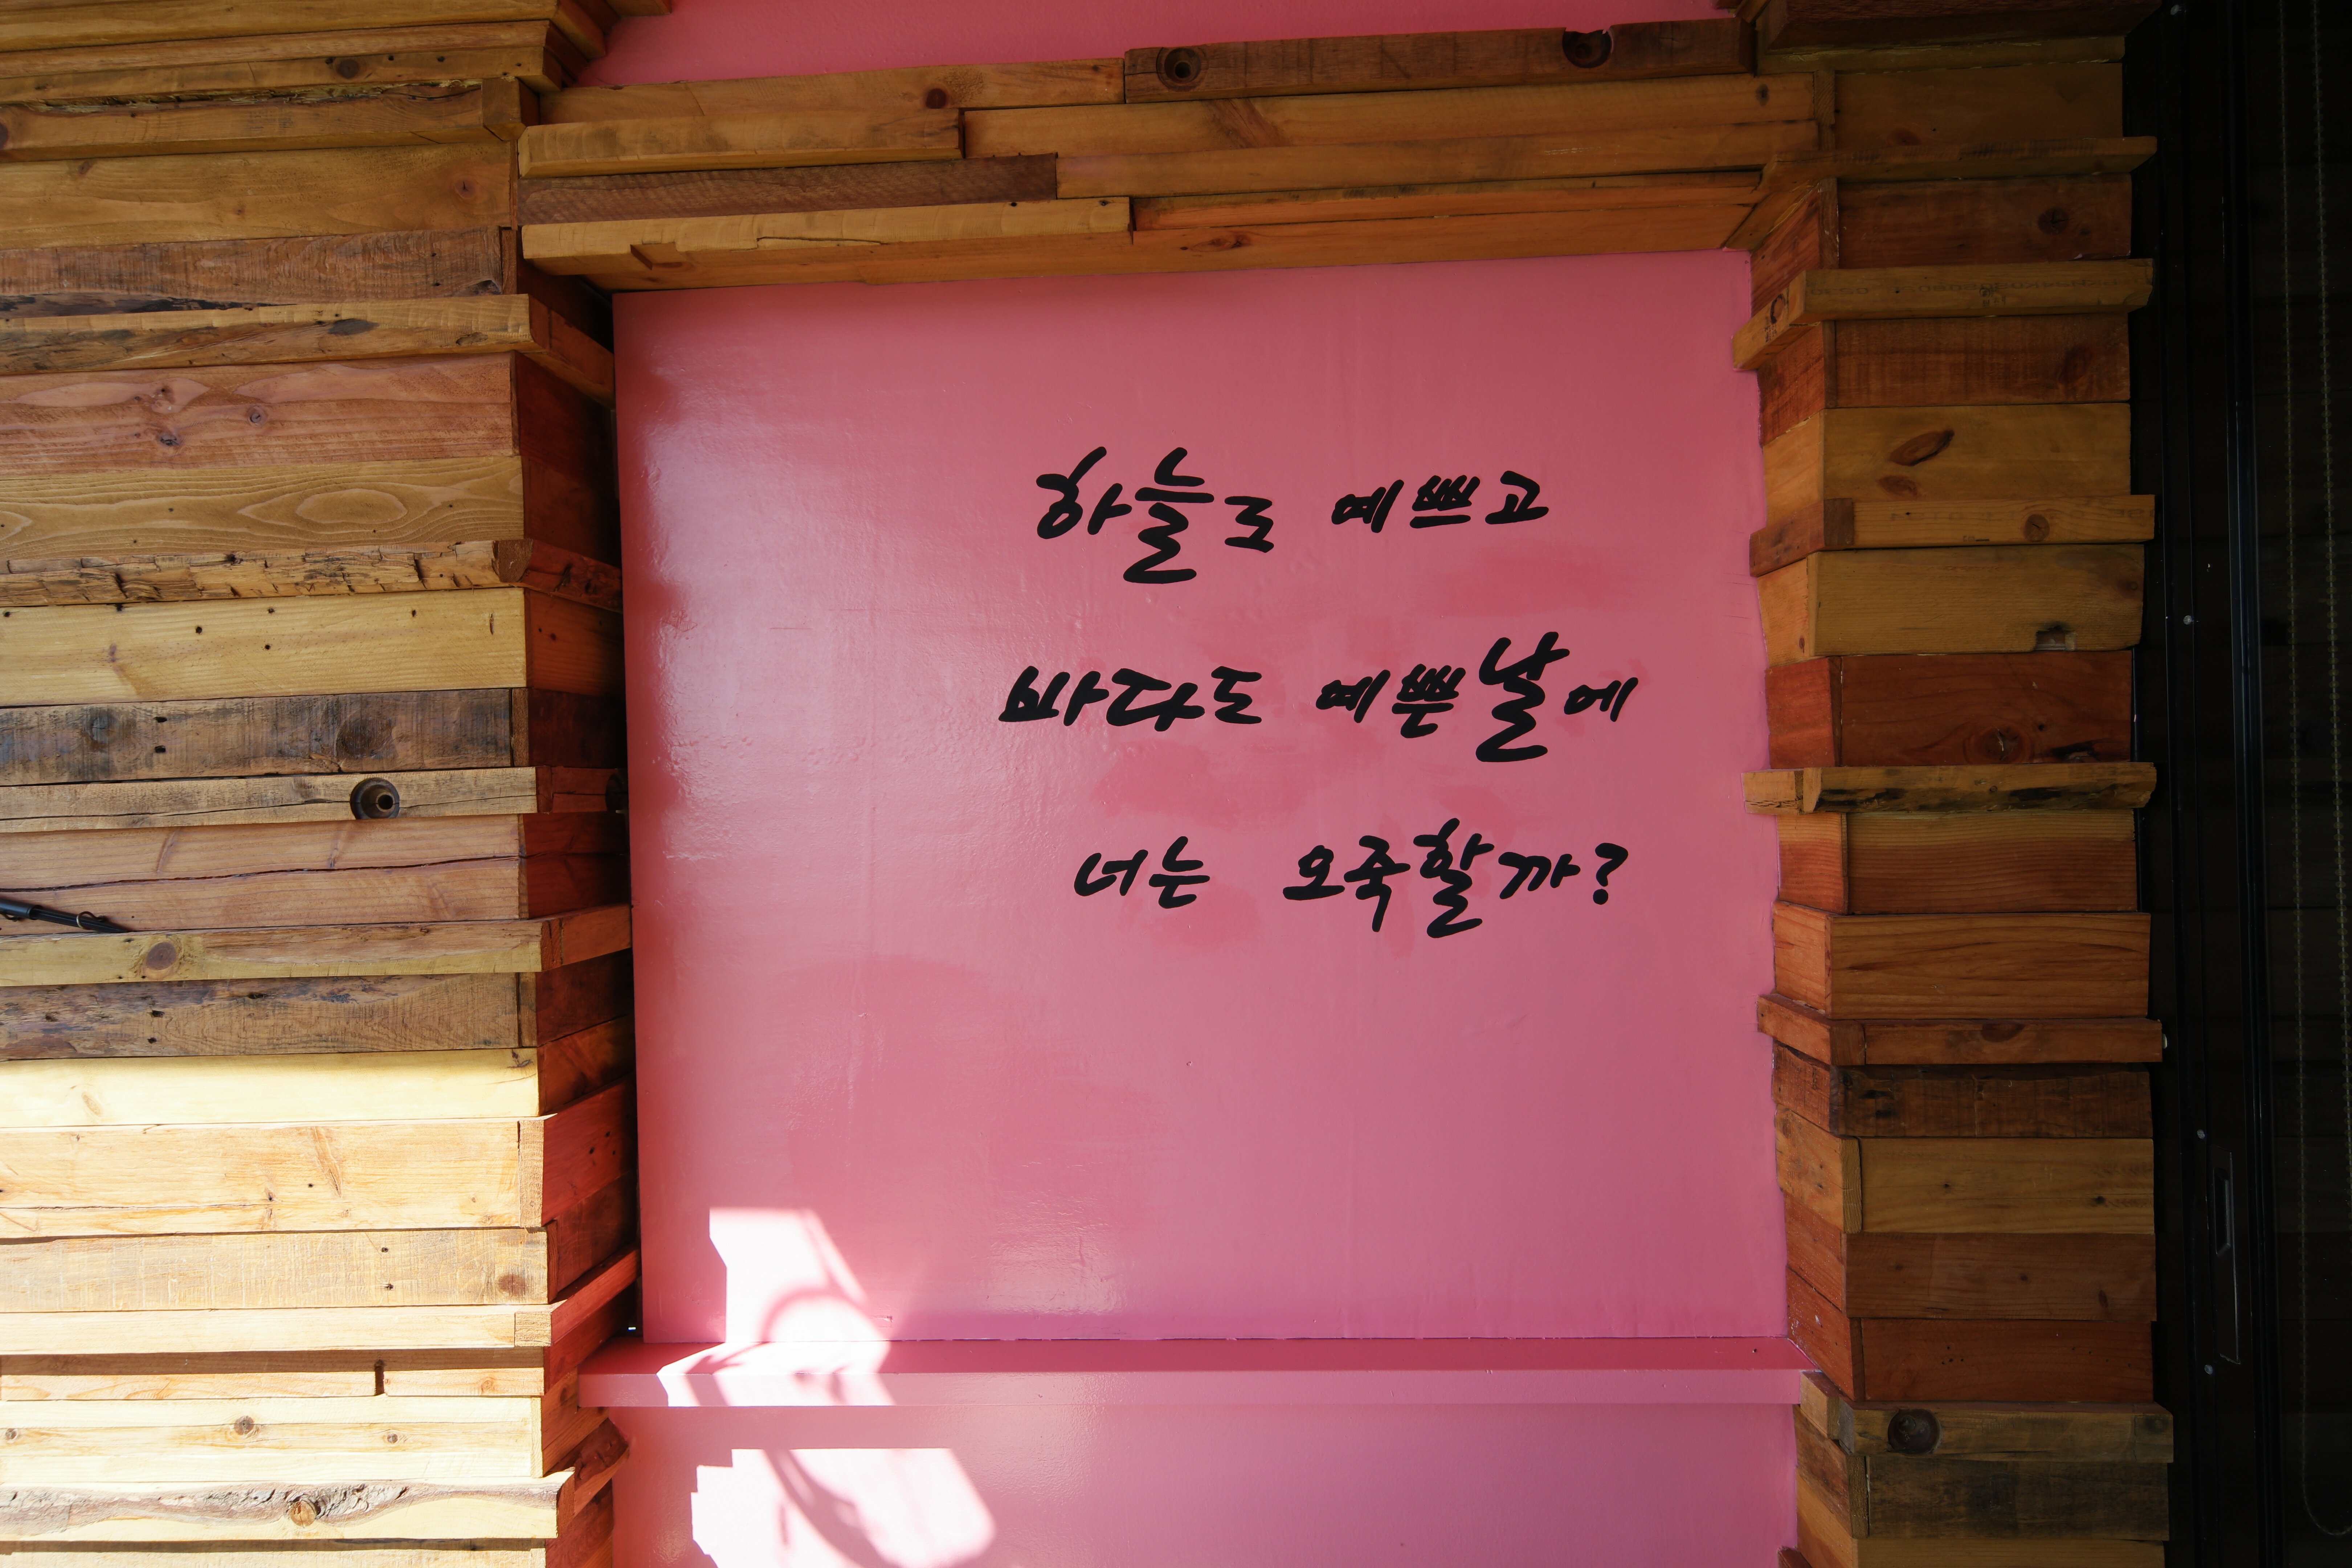 하늘도 예쁘고
바다도 예쁜날에
너는 오죽할까?